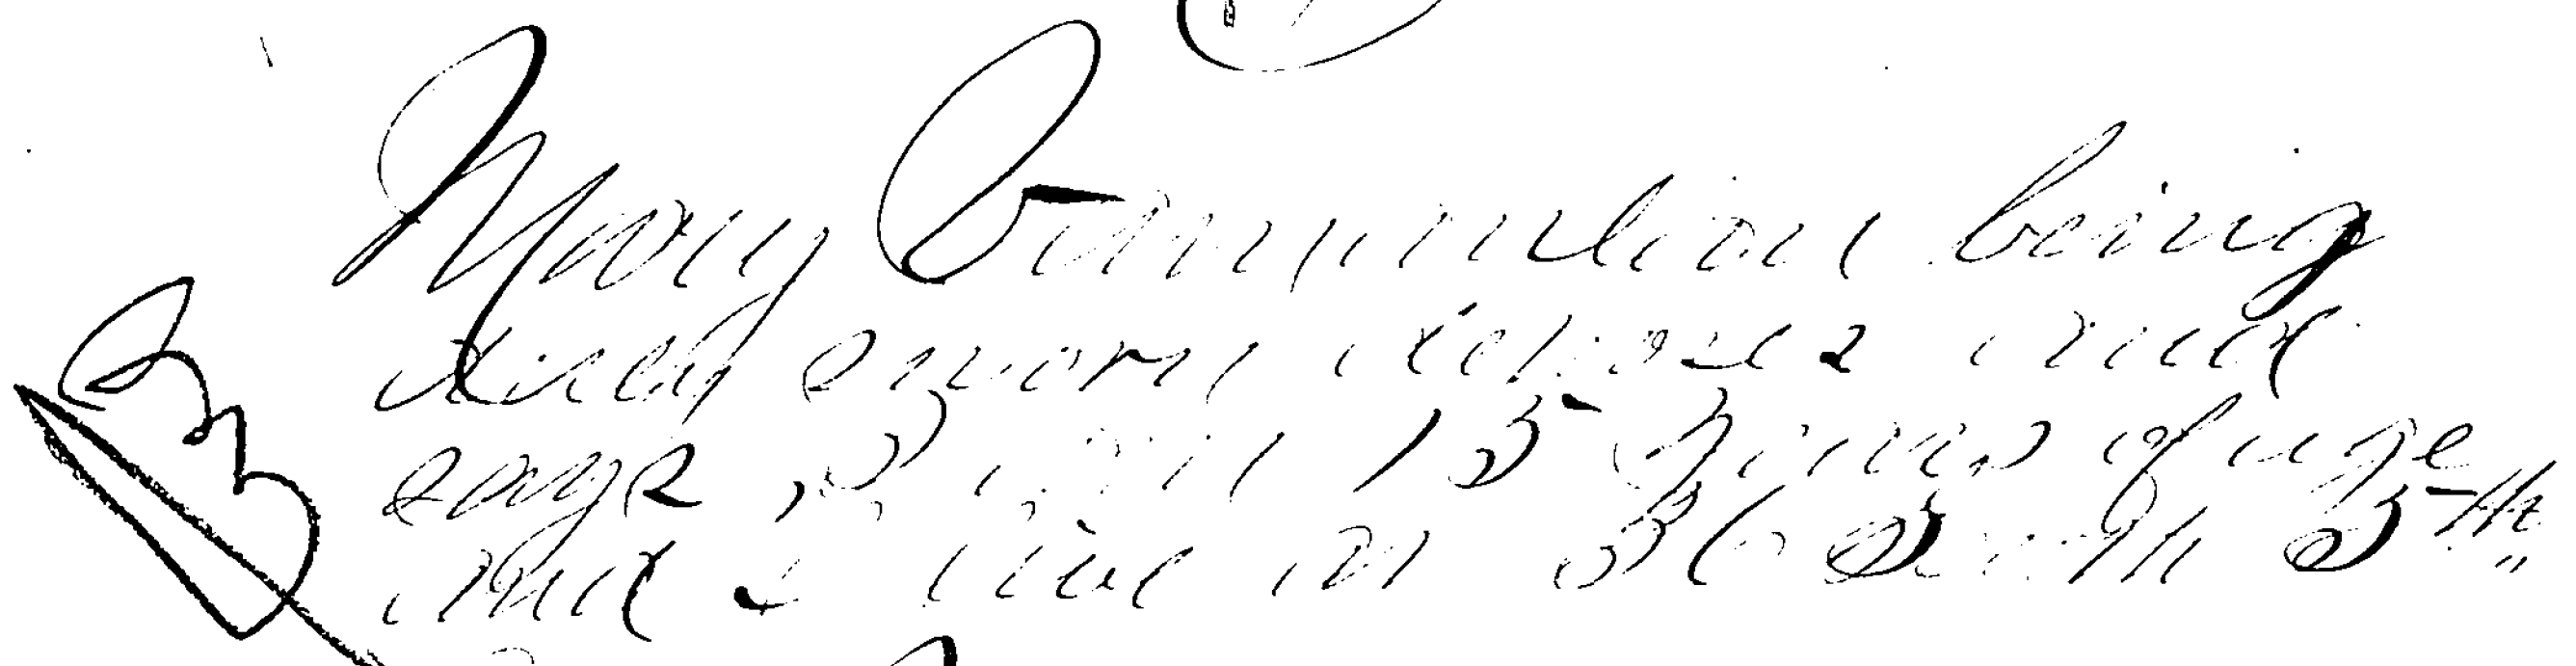 Mary being
duly sworn deposes and
says, I am 15 years of age
and I live at 36 South 5th